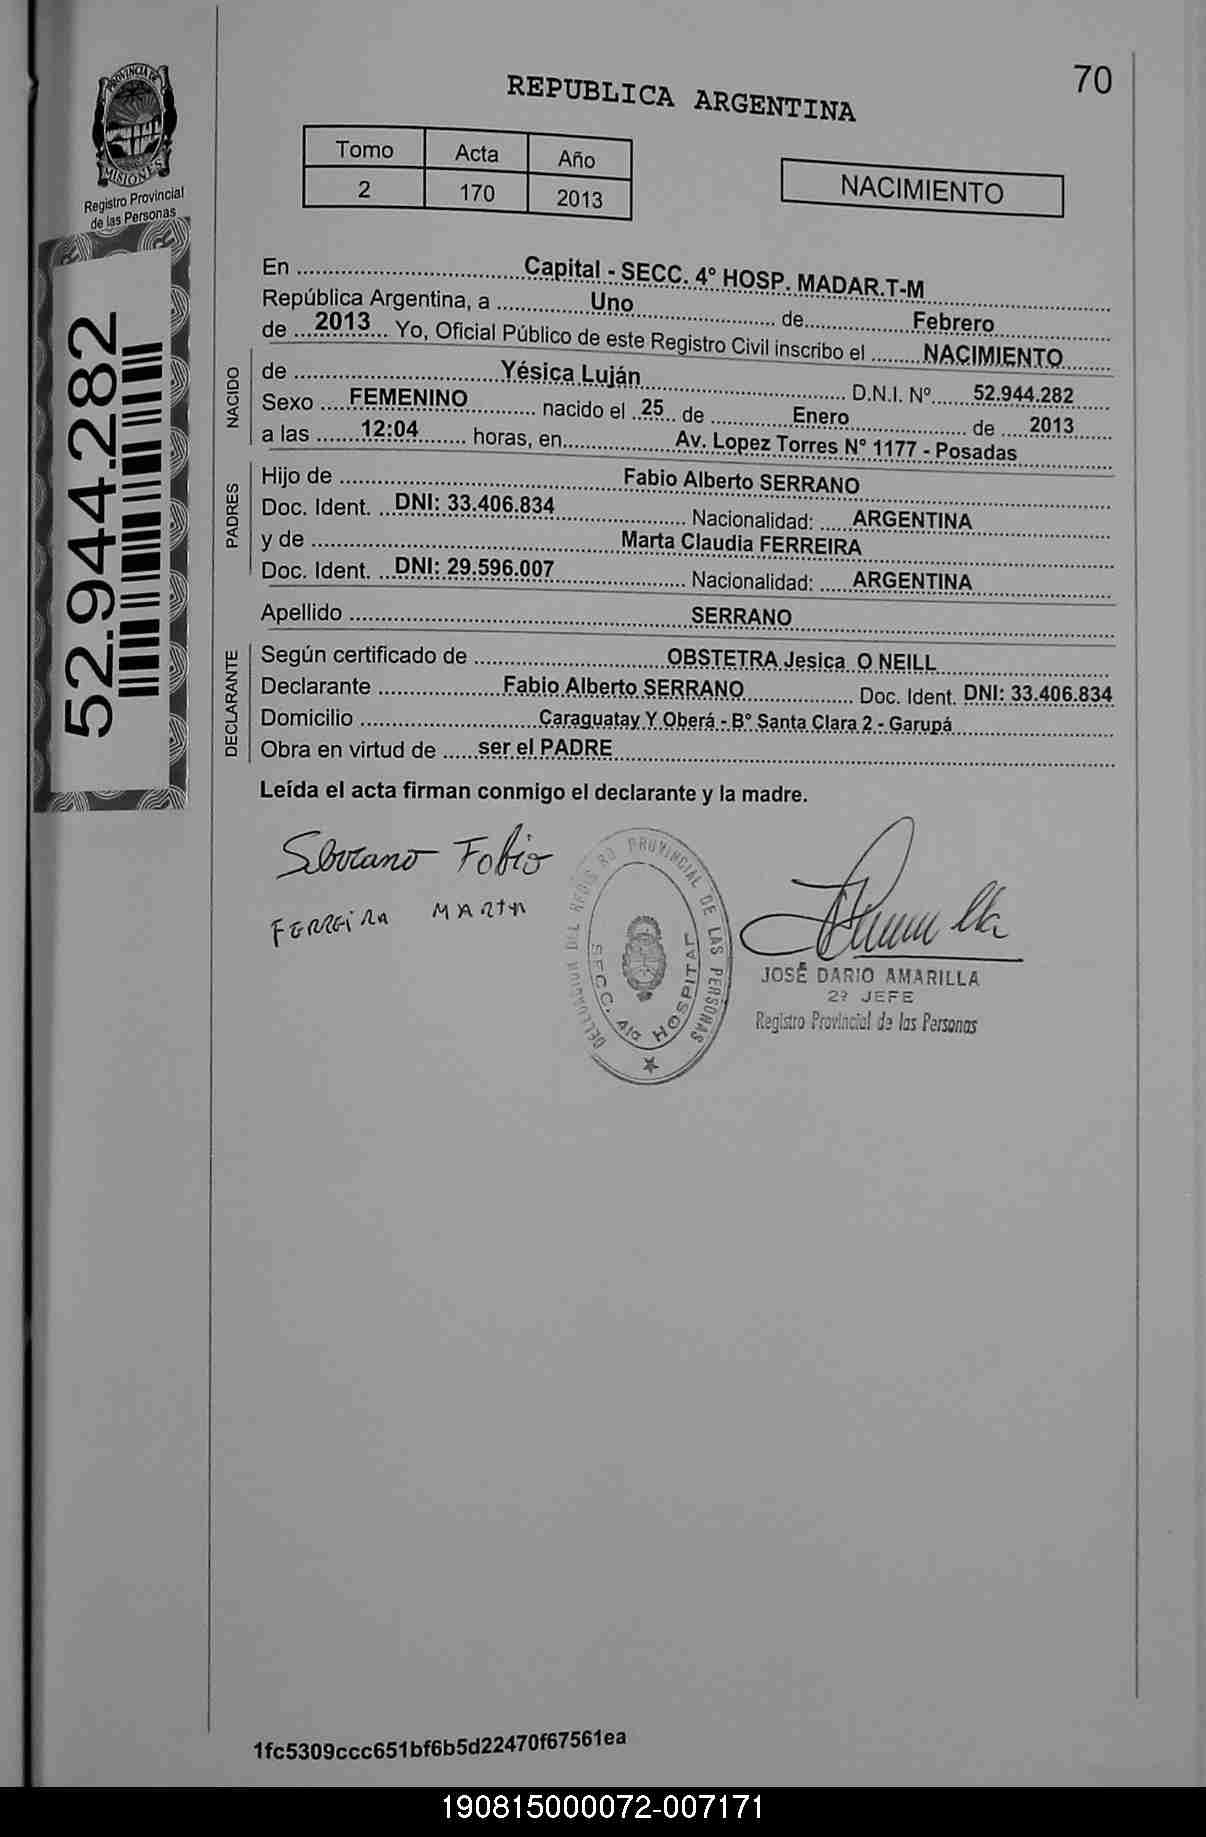 70
REPUBLICA ARGENTINA
PROVINCIA DE
MISIONES
Registro Provincial
de las Personas
Tomo Acta Año
2 170 2013
NACIMIENTO
52.944.282
En Capital - SECC. 4° HOSP. MADAR.T-M
República Argentina, a Uno de Febrero
de 2013 Yo, Oficial Público de este Registro Civil inscribo el NACIMIENTO
NACIDO
de Yésica Luján D.N.I. Nº 52.944.282
Sexo FEMENINO nacido el 25 de Enero de 2013
a las 12:04 horas, en Av. Lopez Torres N° 1177 - Posadas
PADRES
Hijo de Fabio Alberto SERRANO
Doc. Ident. DNI: 33.406.834 Nacionalidad: ARGENTINA
y de Marta Claudia FERREIRA
Doc. Ident. DNI: 29.596.007 Nacionalidad: ARGENTINA
Apellido SERRANO
DECLARANTE
Según certificado de OBSTETRA Jesica O NEILL
Declarante Fabio Alberto SERRANO Doc. Ident. DNI: 33.406.834
Domicilio Caraguatay Y Oberá - B° Santa Clara 2 - Garupá
Obra en virtud de ser el PADRE
Leída el acta firman conmigo el declarante y la madre.
Serrano Fabio
FERREIRA MARTA
DEL REGISTRO PROVINCIAL DE LAS PERSONAS
SECC. 4ta HOSPITAL
JOSÉ DARIO AMARILLA
2º JEFE
Registro Provincial de las Personas
1fc5309ccc651bf6b5d22470f67561ea
190815000072-007171